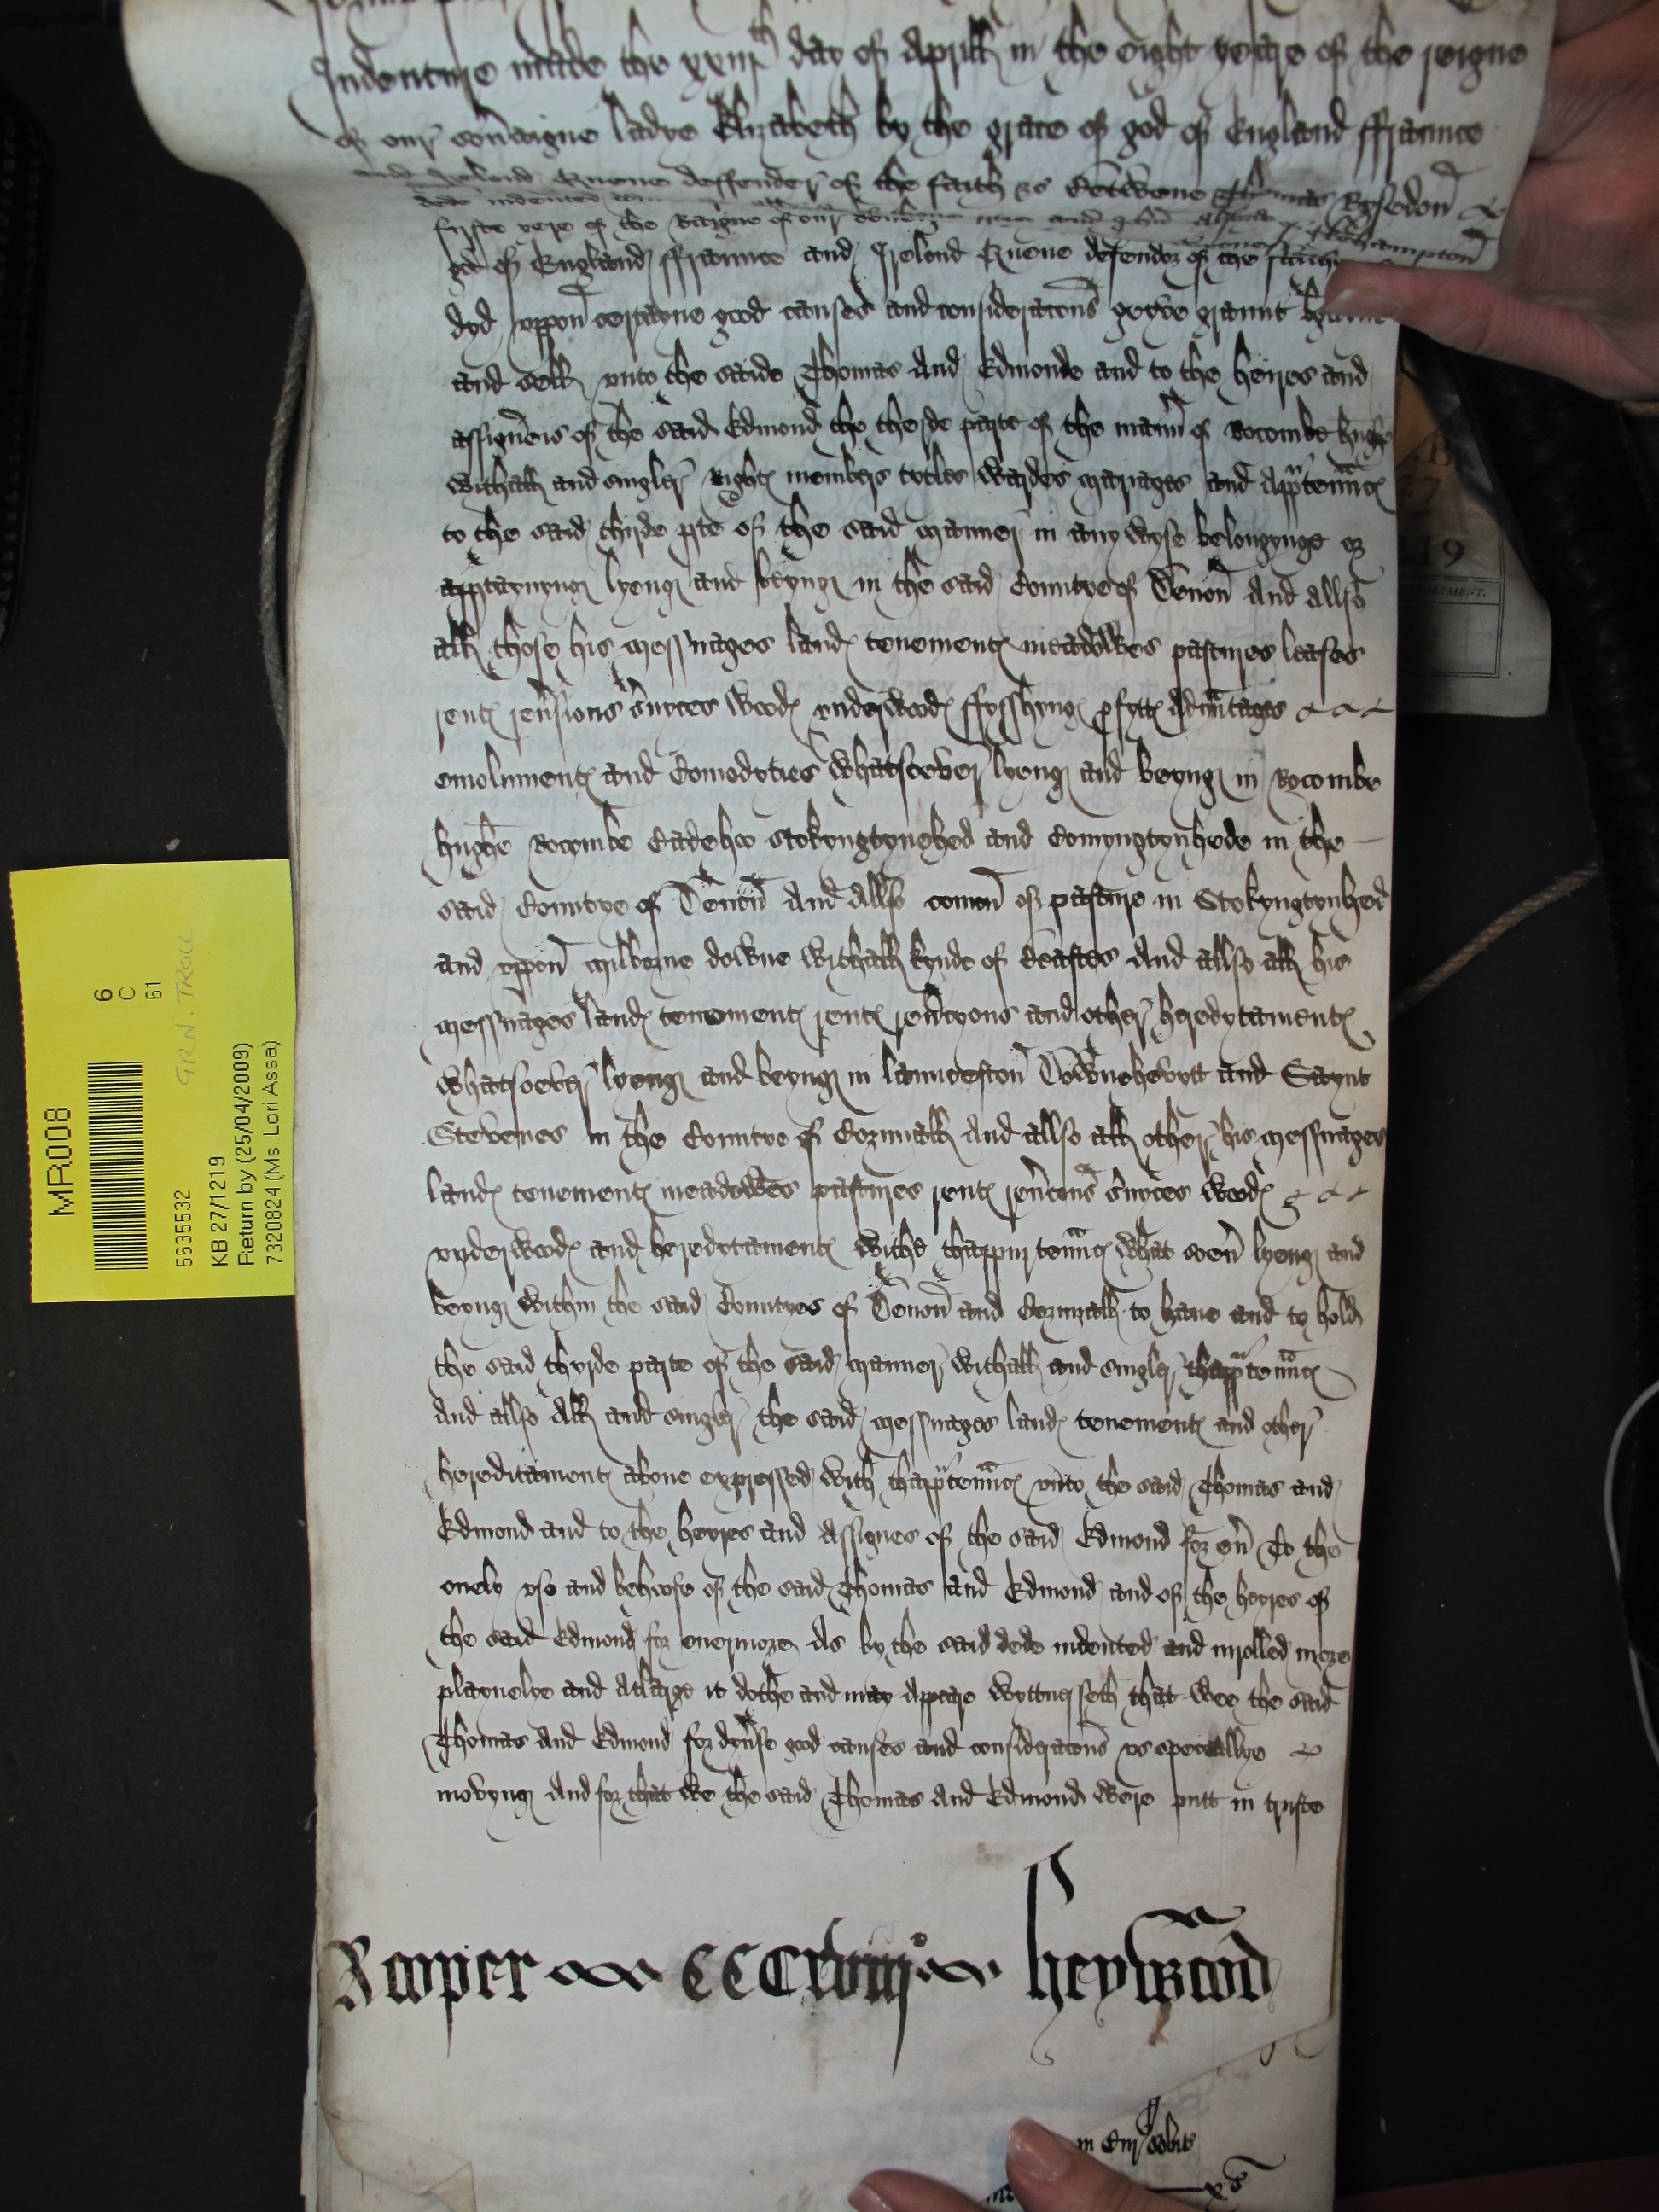 Indenture made the xxiijth day of Aprill in the eight yeare of the reigne
of our sov'aigne ladye Elizabeth by the grace of god of England ffraunce
and Ireland Quene deffender of the faith &c Betwene Thomas
dede indented
firste yere of the Raigne of our
god of England ffraunce and Ireland Quene defendor of the
dyd uppon certayne good causes and consideracons geve graunt
and sell unto the saide Thomas And Edmonde and to the heires and
assignens of the said Edmond the therde parte of the mann' of Rocombe hughe
withall and singler right members totles wardes mariages and App'ten'nc
to the said thirde pte of the said manner in any wyse belongynge or
apptaynyng lyeng and beyng in the said Countye of Devon And allso
all those his messuages land tenement meadowes pastures leases
rent rev'sions s'vyces wood underwood ffysshyng pfytt Advntages
emolument and Comodyties whatsoever lyeng and beyng in Rocombe
hughe Rocombe Cadehoo Stokyngtynehed and Comyngtynhede in the
said Countye of Devon And Allso comon of pasture in Stokyngtynhed
and uppon mylborne downe withall kynde of Beastes And allso all his
messuages land tenement rent rev'cyons and other heredytament
whatsoever lyeng and beyng in launceston Downehevytt and Saynt
Stevenes in the Countye of Cornwall And allso all other his messuages
land tenement meadowes pastures rent rev'cons s'vyces wood
underwood and heredytament withe thappurten'nc what soev' lyeng and
beyng within the said Countyes of Devon and Cornwall to have and to hold
the said thyrde parte of the said manner withall and singler thapp'ten'nc
And allso All and singler the said messuages land tenement and other
hereditament above expressed with thapp'ten'nc unto the said Thomas and
Edmond and to the heyres and Assignes of the said Edmond for ev' To the
onely use and behoofe of the said Thomas and Edmond and of the heyres of
the said Edmond for evermore As by the said dede indented and inrolled more
playnelye and Atlarge it dothe and may Appeare Wyttnesseth that wee the said
Thomas And Edmond for dyv'se good causes and consideracons us speciallye
movyng And for that we the said Thomas And Edmond were putt in truste
Rooper CCCxviij° heywood
MR008
6
C
61
5635532
KB 27/1219
Return by (25/04/2009)
7320824 (Ms. Lori Assa)
19